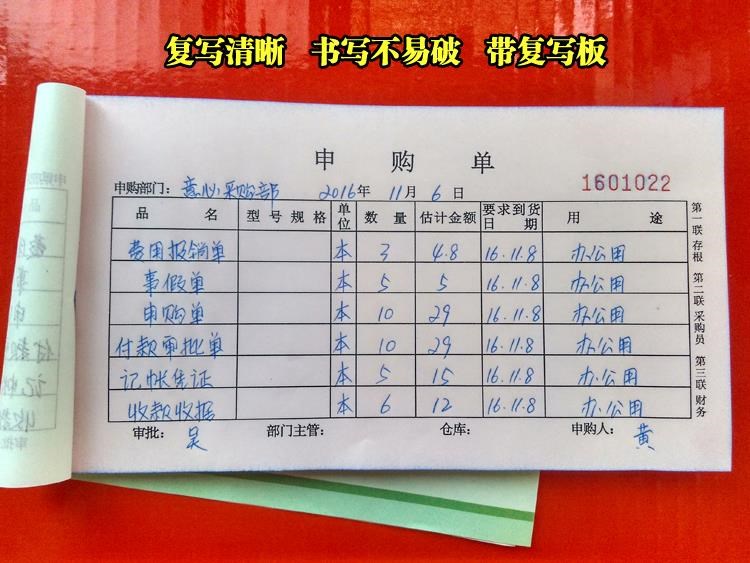 复写清晰 书写不易破 带复写板
申购单
申购部门：意心采购部 2016年 11月 6日 1601022
品名 型号规格 单位 数量 估计金额 要求到货日期 用途
费用报销单 本 3 4.8 16.11.8 办公用
事假单 本 5 5 16.11.8 办公用
申购单 本 10 29 16.11.8 办公用
付款审批单 本 10 29 16.11.8 办公用
记帐凭证 本 5 15 16.11.8 办公用
收款收据 本 6 12 16.11.8 办公用
审批：吴 部门主管： 仓库： 申购人：黄
第一联 存根 第二联 采购员 第三联 财务